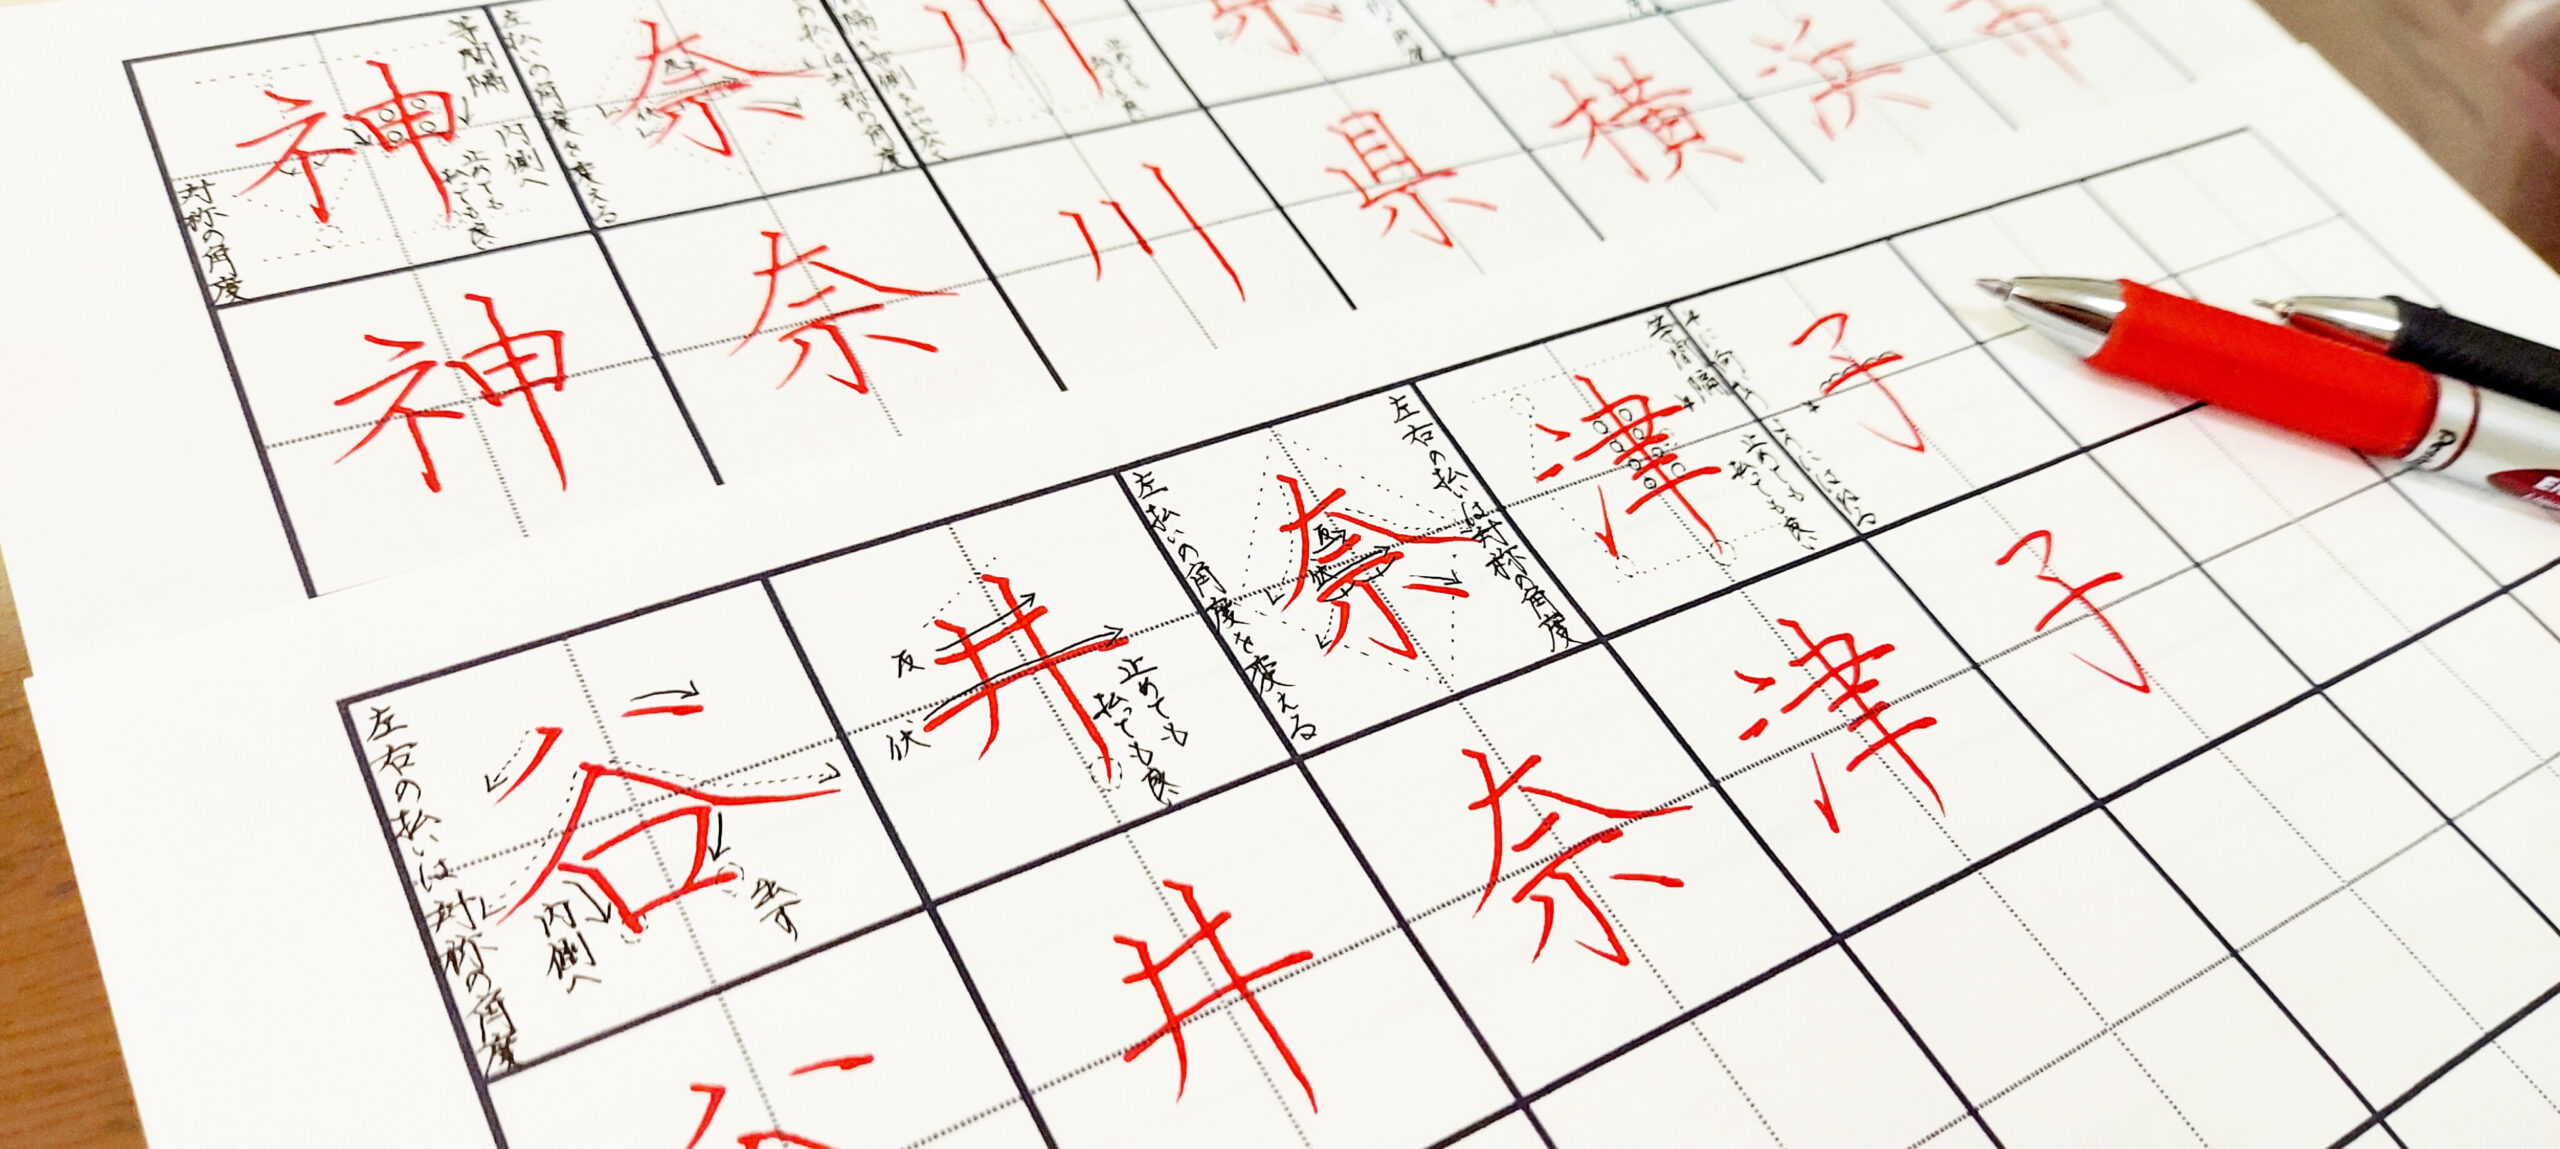 神奈川県
等間隔
内側へ
止めても
払っても良い
対称の角度
左払いの角度を変える
の払いは対称の角度
神奈川県横浜市
谷井奈津子
左右の払いは対称の角度
内側へ
出す
反
伏
止めても
払っても良い
左払いの角度を変える
左右の払いは対称の角度
反
伏
等間隔
止めても
払っても良い
井奈津子